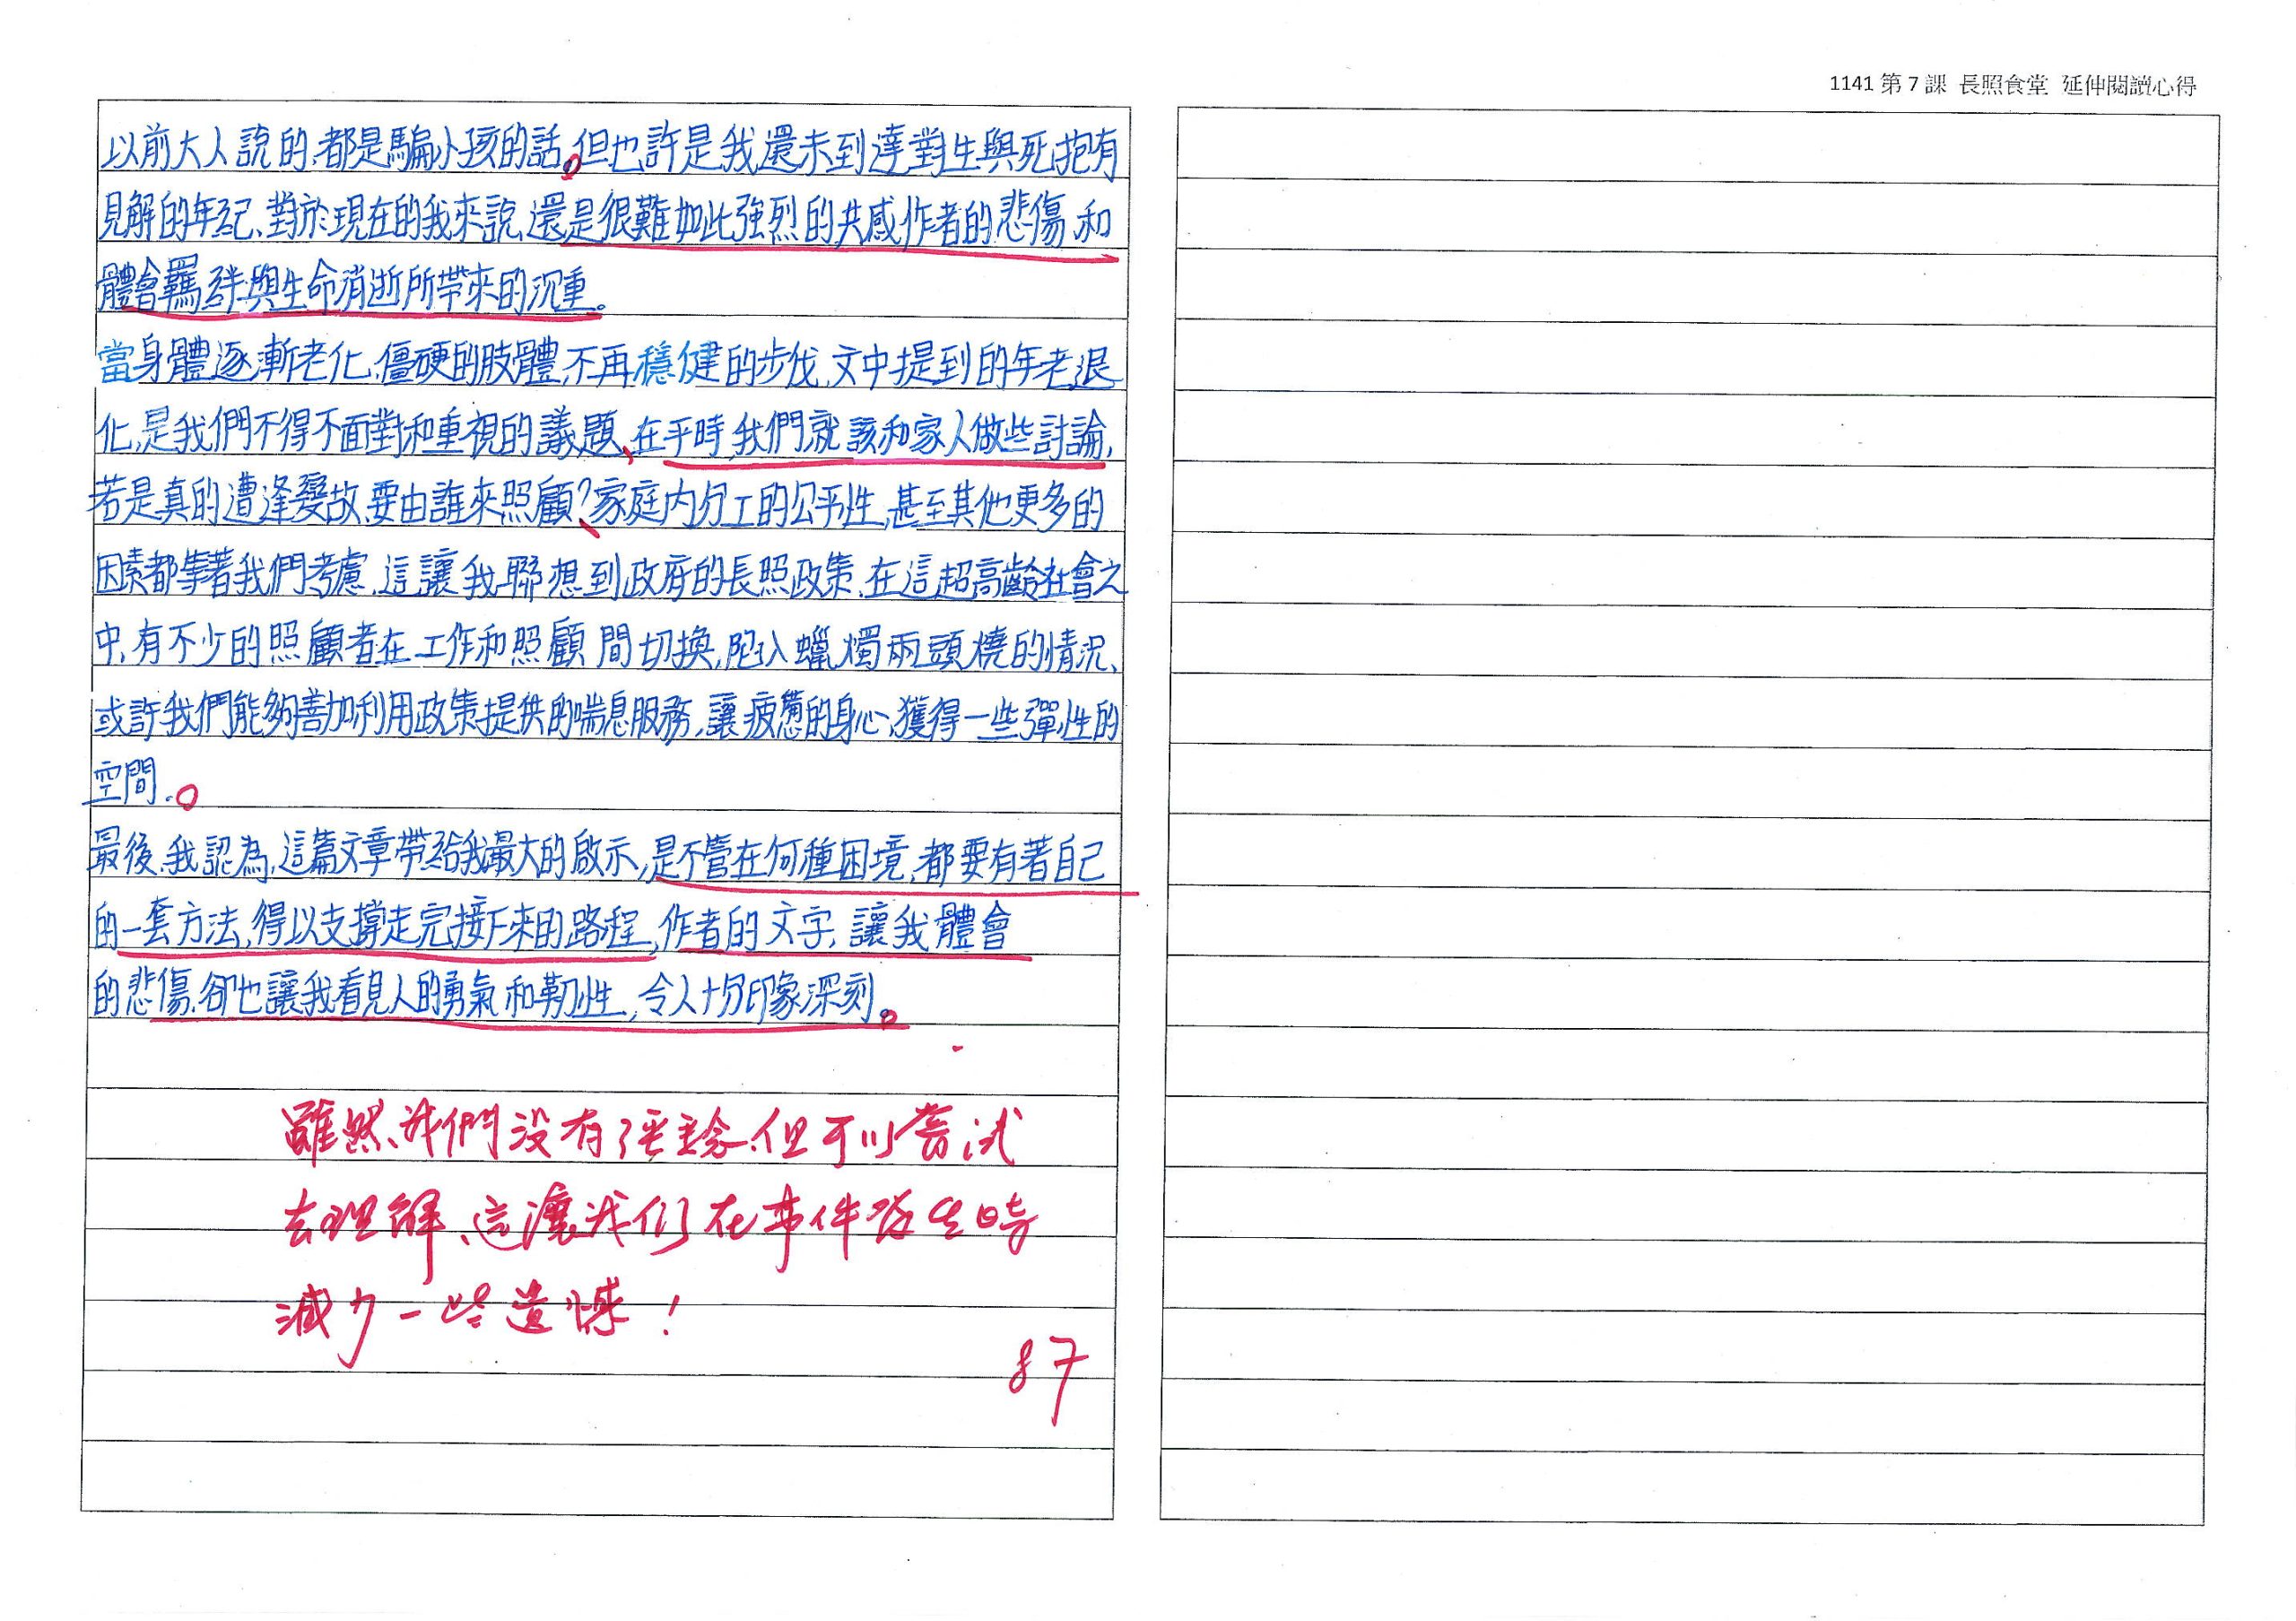 1141 第 7 課 長照食堂 延伸閱讀心得
以前大人說的,都是騙小孩的話。但也許是我還未到達對生與死抱有
見解的年記、對於現在的我來說,還是很難如此強烈的共感作者的悲傷,和
體會羈絆與生命消逝所帶來的沉重。
當身體逐漸老化,僵硬的肢體,不再穩健的步伐,文中提到的年老退
化,是我們不得不面對和重視的議題、在平時,我們就該和家人做些討論,
若是真的遭逢變故,要由誰來照顧?、家庭內分工的公平性,甚至其他更多的
因素都等著我們考慮,這讓我聯想到政府的長照政策,在這超高齡社會之
中,有不少的照顧者在工作和照顧間切換,陷入蠟燭兩頭燒的情況、
或許我們能夠善加利用政策提供的喘息服務,讓疲憊的身心,獲得一些彈性的
空間.。
最後,我認為,這篇文章帶給我最大的啟示,是不管在何種困境,都要有著自己
的一套方法,得以支撐走完接下來的路程,作者的文字,讓我體會
的悲傷,卻也讓我看見人的勇氣和韌性,令人十分印象深刻。
雖然、我們沒有經驗,但可以嘗試
去理解、這讓我们在事件發生時
減少一些遺憾!
87